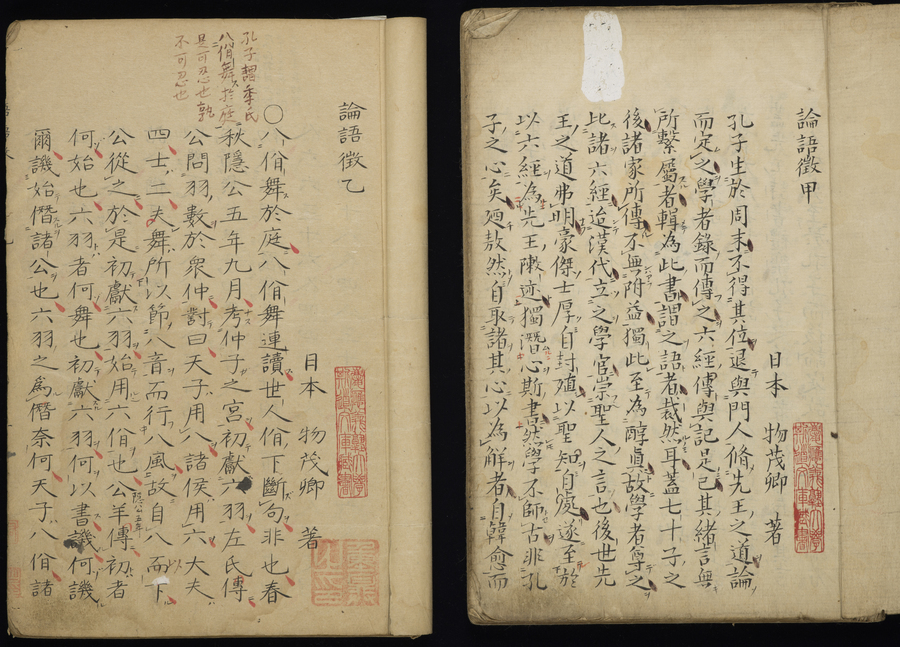 論語徵甲
日本 物茂卿 著
孔子生於周末不得其位退與門人脩先王之道論
而定之學者錄而傳之六經傳與記是已其緒言無
所繫屬者輯為此書謂之語者裁然耳蓋七十子之
後諸家所傳不無附益獨此至為醇眞故學者尊之
比諸六經迨漢代立之學官崇聖人之言也後世先
王之道弗明豪傑士厚自封殖以聖知自處遂至於
以六經為先王陳迹獨潛心斯書然學不師古非孔
子之心矣廼敖然自取諸其心以為解者自韓愈而
論語徵乙
日本 物茂卿 著
孔子謂季氏
八佾舞於庭
是可忍也孰
不可忍也
○八佾舞於庭八佾舞連讀世人佾下斷句非也春
秋隱公五年九月考仲子之宮初獻六羽左氏傳
公問羽數於衆仲對曰天子用八諸侯用六大夫
四士二夫舞所以節八音而行八風故自八而下
公從之於是初獻六羽始用六佾也公羊傳初者
隱公五年
何始也六羽者何舞也初獻六羽何以書譏何譏
爾譏始僭諸公也六羽之為僭奈何天子八佾諸